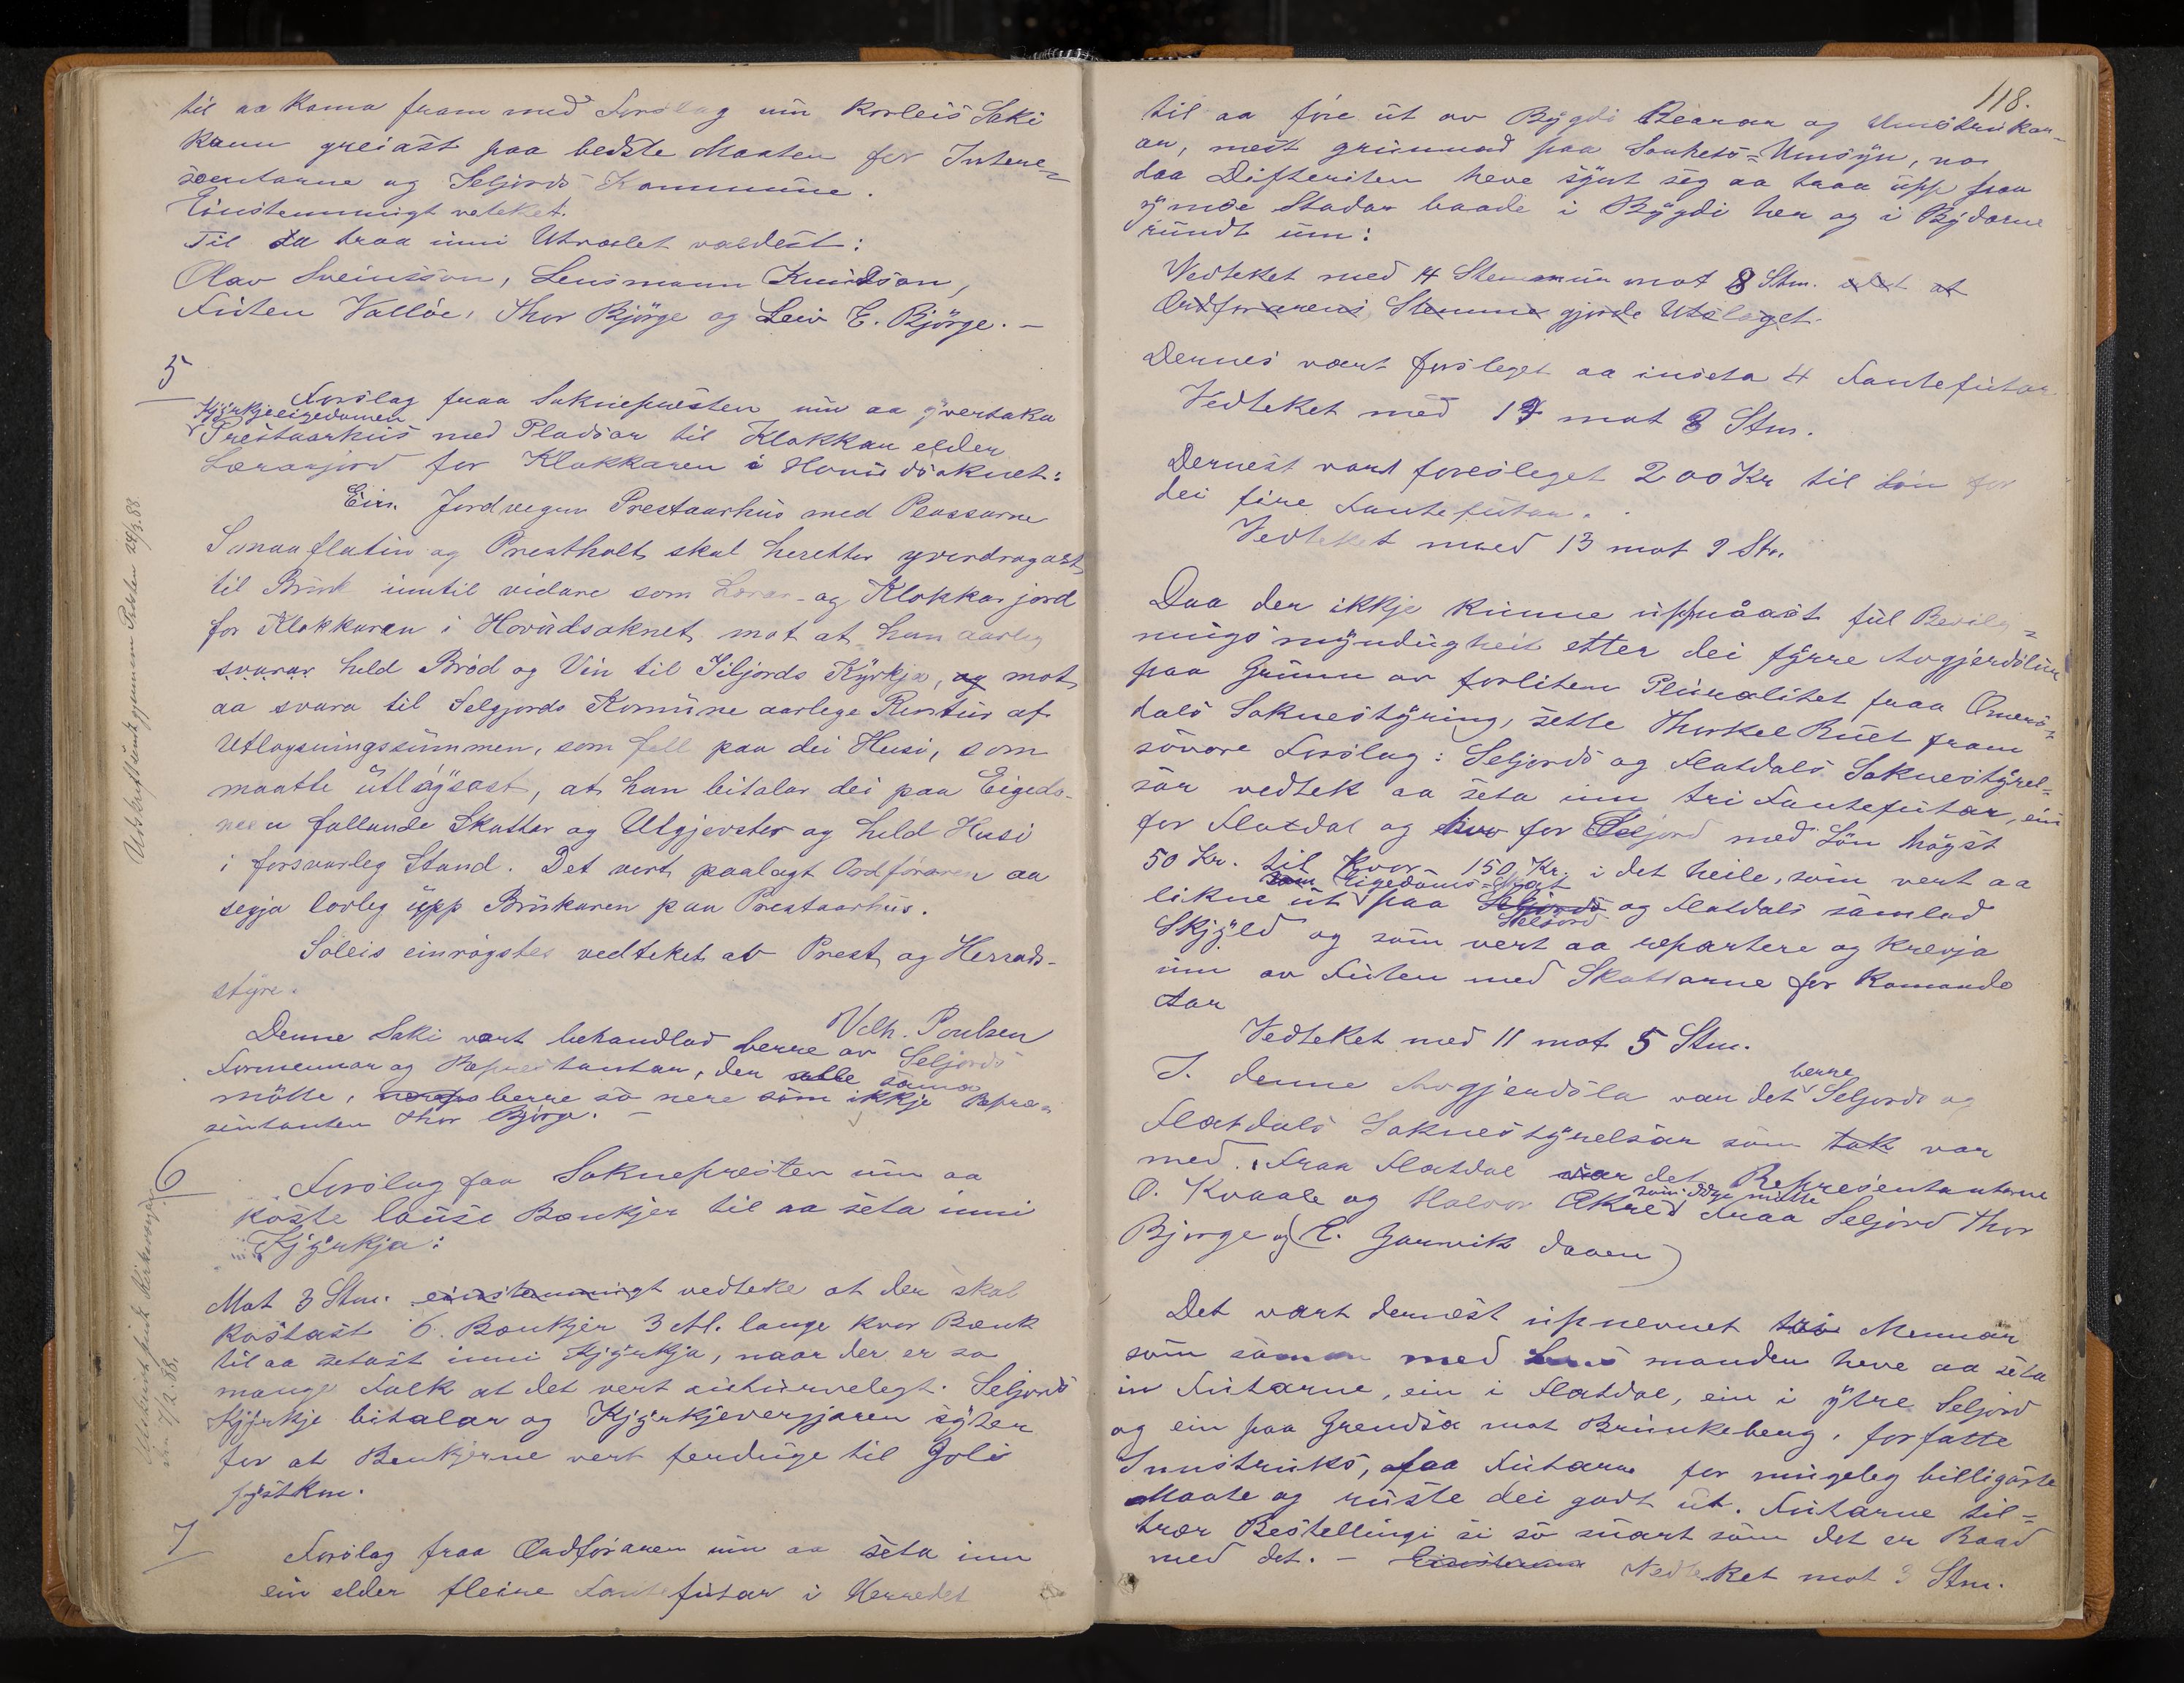 til aa koma fram med Forslag um korleis Saki
kann greiast paa bedste Maaten for Intere=
sentarne og Seljords Kommune.
Einstemmigt veteket.
Til da traa inni Utvalet valdest:
Olav Sveinsson, Lensmann Knudson,
Futen Valløe, Thor Bjørge og Leiv E. Bjørge. —
5
Forslag fraa Sokneprestten um aa yvertaka
Kjyrkjeeigedomen
Prestaarhus med Pladsar til Klokkar elder
Lærarjord for Klokkaren i Hovudsoknet:
Ein. Jordvegen Prestaarhus med Plassarne
Smaaflatin og Prestholt skal heretter yverdragast
til Bruk inntil vidare som Lærar- og Klokkarjord
for Klokkaren i Hovudsoknet mot at han aarleg
svarar held Brød og Vin til Seljords Kyrkja, og mot
aa svara til Selgjords Komune aarlege Rentur af
Utløysningssummen, som fell paa dei Husi, som
maatte utløysast, at han bitalar dei paa Eigedo-
men fallande Skatter og Utgjevster og held Husi
i forsvarleg Stand. Det vert paalagt Ordføraren aa
segja lovleg upp Brukaren paa Prestaarhus.
Soleis einrøgstes vedteket av Prest og Herrads-
styre.
Vilh. Poulsen
Denne Saki vart behandlad berre av Seljords
Formennar og Represtantar, der alle sama
møtte, berre so nere som ikkje Repræ=
sentanten Thor Bjørge. —
6
Forslag fraa Soknepresten um aa
koste lause Bænkjer til aa seta inni
Kjyrkja:
Mot 3 Stm. einstemmigt vedteke at der skal
kostast 6 Bænkjer 3 Al. lange kvor Bænk
til aa setast inni Kjyrkja, naar der er so
mange Folk at det vert naudurvelegt. Seljords
Kjyrkje bitalar og Kjyrkjevergjaren syter
for at Benkjerne vert ferduge til Joli
fystkom.
7
Forslag fraa Ordføraren um aa seta inn
ein elder fleire Fantefutar i Herredet
Utskrift sendt gjennem Posten 24/3.88.
Utskrift sendt Kirkevergjen
den 7/2.88.
118.
til aa føre ut av Bygdi Bearar og Umstrukar-
ar, mest grunnad paa Sunheds=Umsyn, no
daa Difteriten heve synt seg aa taaa upp paa
ymse Stadar baade i Bygdi her og i Bydarne
rundt um:
Vedteket med 14 Stemmur mot 8 Stm. alt at
Ordforarens Stemme gjorde Utslaget.
Dernes vart forsleget aa inseta 4 Fantefutar
Vedteket med 14 mot 8 Stm.
Dernest vard foresleget 200 Kr til Løn for
dei fire Fantefutar.
Vedteket med 13 mot 9 Stm.
Daa der ikkje kunne uppnåast full Bevilg=
nings myndugheit etter dei fyrre Avgjerdslur
paa Grunn av forliten Pluralitet fraa Omnes=
dals Soknestyring, sette Thorkel Rue fram
sovore Forslag: Seljords og Flatdals Soknestyrel=
sar vedtek aa seta inn tri Fantefutar, ein
for Flatdal og tvo for Seljord med Løn høgst
50 Kr. til kvor 150 Kr. i det heile, som vert aa
som Eigedoms=Skat
likne ut paa Seljords og Flatdals samlad
Seljord
Skjyld og som vert aa repartere og krevja
inn av Futen med Skattarne for komande
Aar
Vedteket med 11 mot 5 Stm.
I denne Avgjerdsla var det berre Seljords og
Flatdals Soknestyrelsar som tok var
med. Fraa Flatdal var det Representantarne
O. Kvaale og Halvor Økred som ikkje møtte Fraa Seljord Thor
Bjørge og (E. Garvik daaen)
Det vart dernæst upnevnet tri Mennar
som saman med Lensmanden heve aa seta
in Futarne, ein i Flatdal, ein i ytre Seljord
og ein paa Grendsa mot Brunkeberg, forfatte
Innstruks, faa Futarne for mugeleg billigaste
Maate og ruste dei godt ut. Futarne til=
trær Bestellingi si so snart som det er Raad
med det. — Einstemm Vedteket mot 3 Stm.